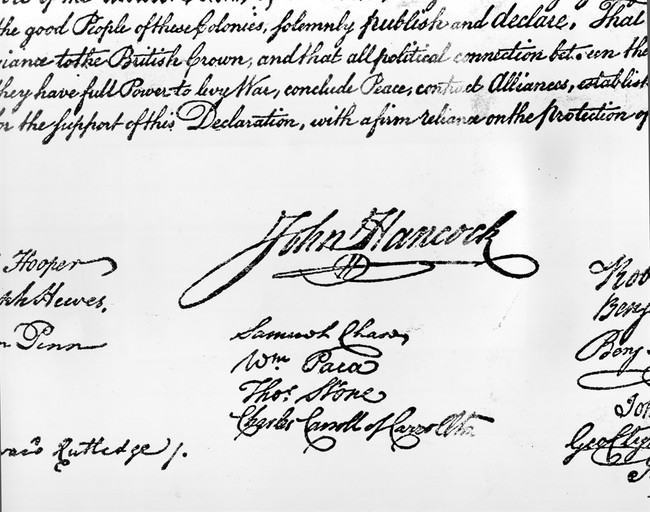 the good People of these Colonies, solemnly publish and declare, That
iance to the British Crown, and that all political connection between the
they have full Power to levy War, conclude Peace, contract Alliances, establish
or the support of this Declaration, with a firm reliance on the protection of
John Hancock
Hooper
ph Hewes,
n Penn
Samuel Chase
Wm. Paca
Thos. Stone
Charles Carroll of Carrollton
ward Rutledge /.
Rob
Benj
Benj
Joh
Geo Cly